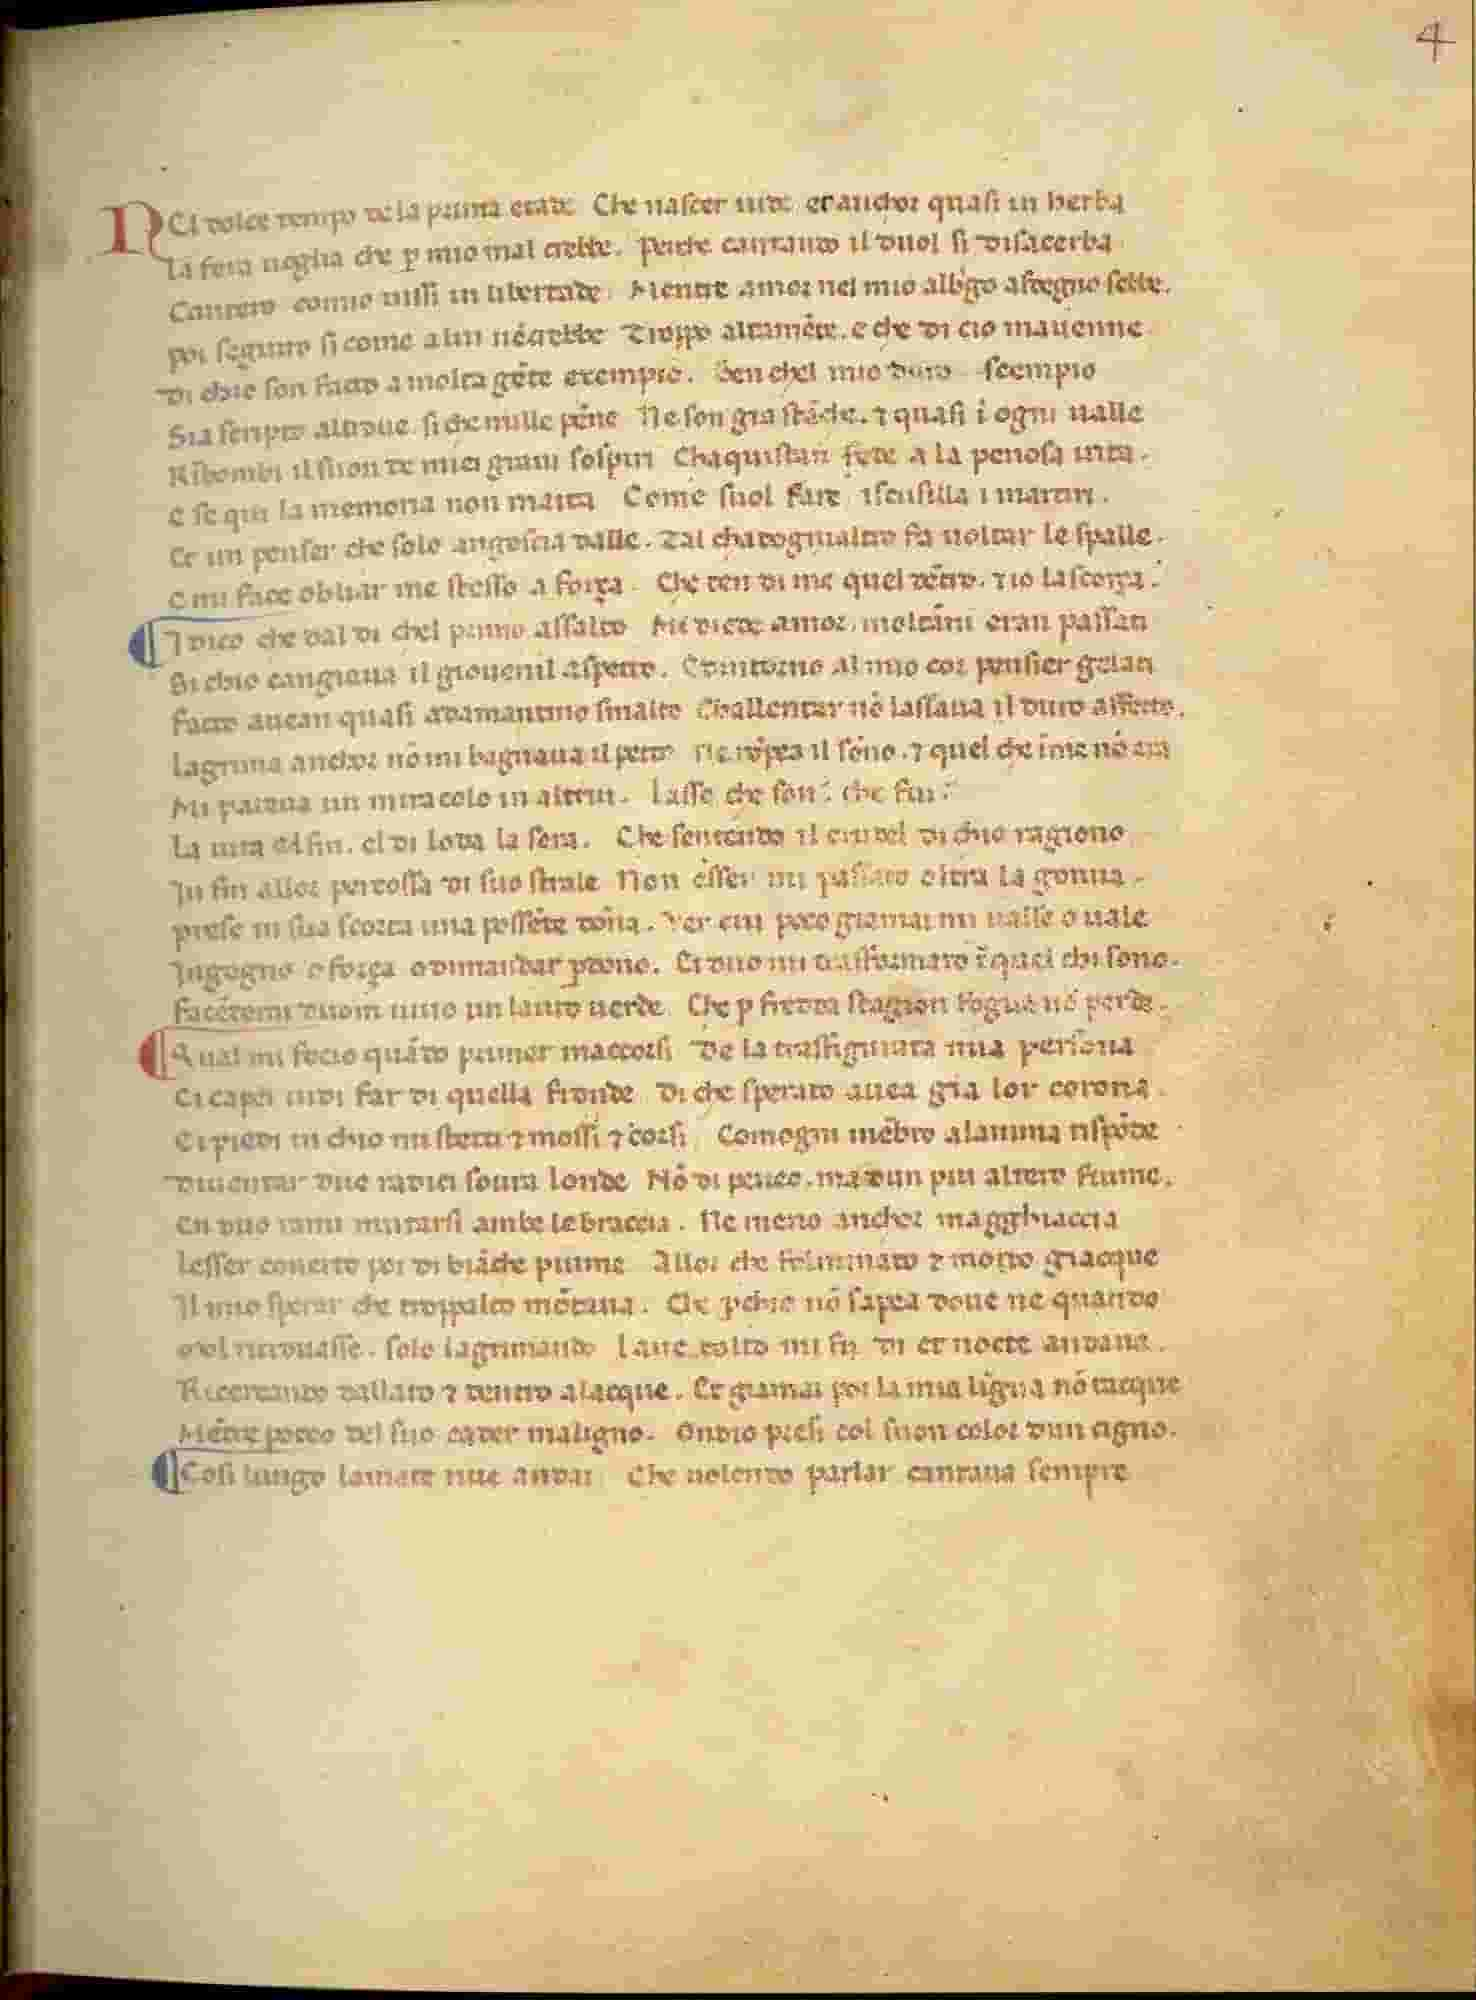 4
NEl dolce tempo de la prima etade Che nascer uide et anchor quasi in herba
La fera uoglia che p mio mal crebbe. Perche cantando il duol si disacerba
Cantero comio uissi in libertade Mentre amor nel mio albgo a sdegno sebbe.
Poi seguiro si come a lui nencrebbe Troppo altamēte. e che di cio mauenne
Di chio son facto a molta gēte exempio. Ben chel mio duro scempio
Sia scripto altroue. si che mille pēne Ne son gia stāche. ⁊ quasi ī ogni ualle
Rībombi il suon de miei graui sospiri Chaquistan fede a la penosa uita.
E se qui la memoria non maita Come suol fare iscusilla i martiri.
Et un penser che solo angoscia dalle. Tal chadognialtro fa uoltar le spalle.
E mi face obliar me stesso a força. Che ten di me quel dētro. ⁊ io la scorça.
I dico che dal di chel primo assalto Mi diede amor. moltāni eran passati
Si chio cangiaua il giouenil aspetto. Edintorno al mio cor pensier gelati
Facto auean quasi adamantino smalto Challentar nō lassaua il duro affetto.
Lagrima anchor nō mi bagnaua il petto Ne rōpea il sōno. ⁊ quel che īme nō era
Mi pareua un miracolo in altrui. Lasso che son? che fui?
La uita el fin. el di loda la sera. Che sentendo il crudel di chio ragiono
In fin allor percossa di suo strale Non esser mi passato oltra la gonna.
Prese in sua scorta una possēte dōna. Ver cui poco giamai mi ualse o uale
Ingegno o força o dimandar pdono. Ei duo mi trasformaro ī quel chi sono.
Facēdomi duom uiuo un lauro uerde. Che p fredda stagion foglia nō perde.
Qual mi fecio quādo primer maccorsi De la trasfigurata mia persona
E i capei uidi far di quella fronde Di che sperato auea gia lor corona.
E i piedi in chio mi stetti ⁊ mossi ⁊ corsi Comogni mēbro a lanima rispōde
Diuentar due radici soura londe Nō di peneo. ma dun piu altero fiume.
En duo rami mutarsi ambe le braccia. Ne meno anchor magghiaccia
Lesser couerto poi di biāche piume Allor che folminato ⁊ morto giacque
Il mio sperar che troppalto mōtaua. Che pchio nō sapea doue ne quando
Mel ritrouasse. solo lagrimando Laue tolto mi fu di et nocte andaua.
Ricercando dallato ⁊ dentro a lacque. Et giamai poi la mia līgua nō tacque
Mētre poteo del suo cader maligno. Ondio presi col suon color dun cigno.
Cosi lungo lamate riue andai Che uolendo parlar cantaua sempre